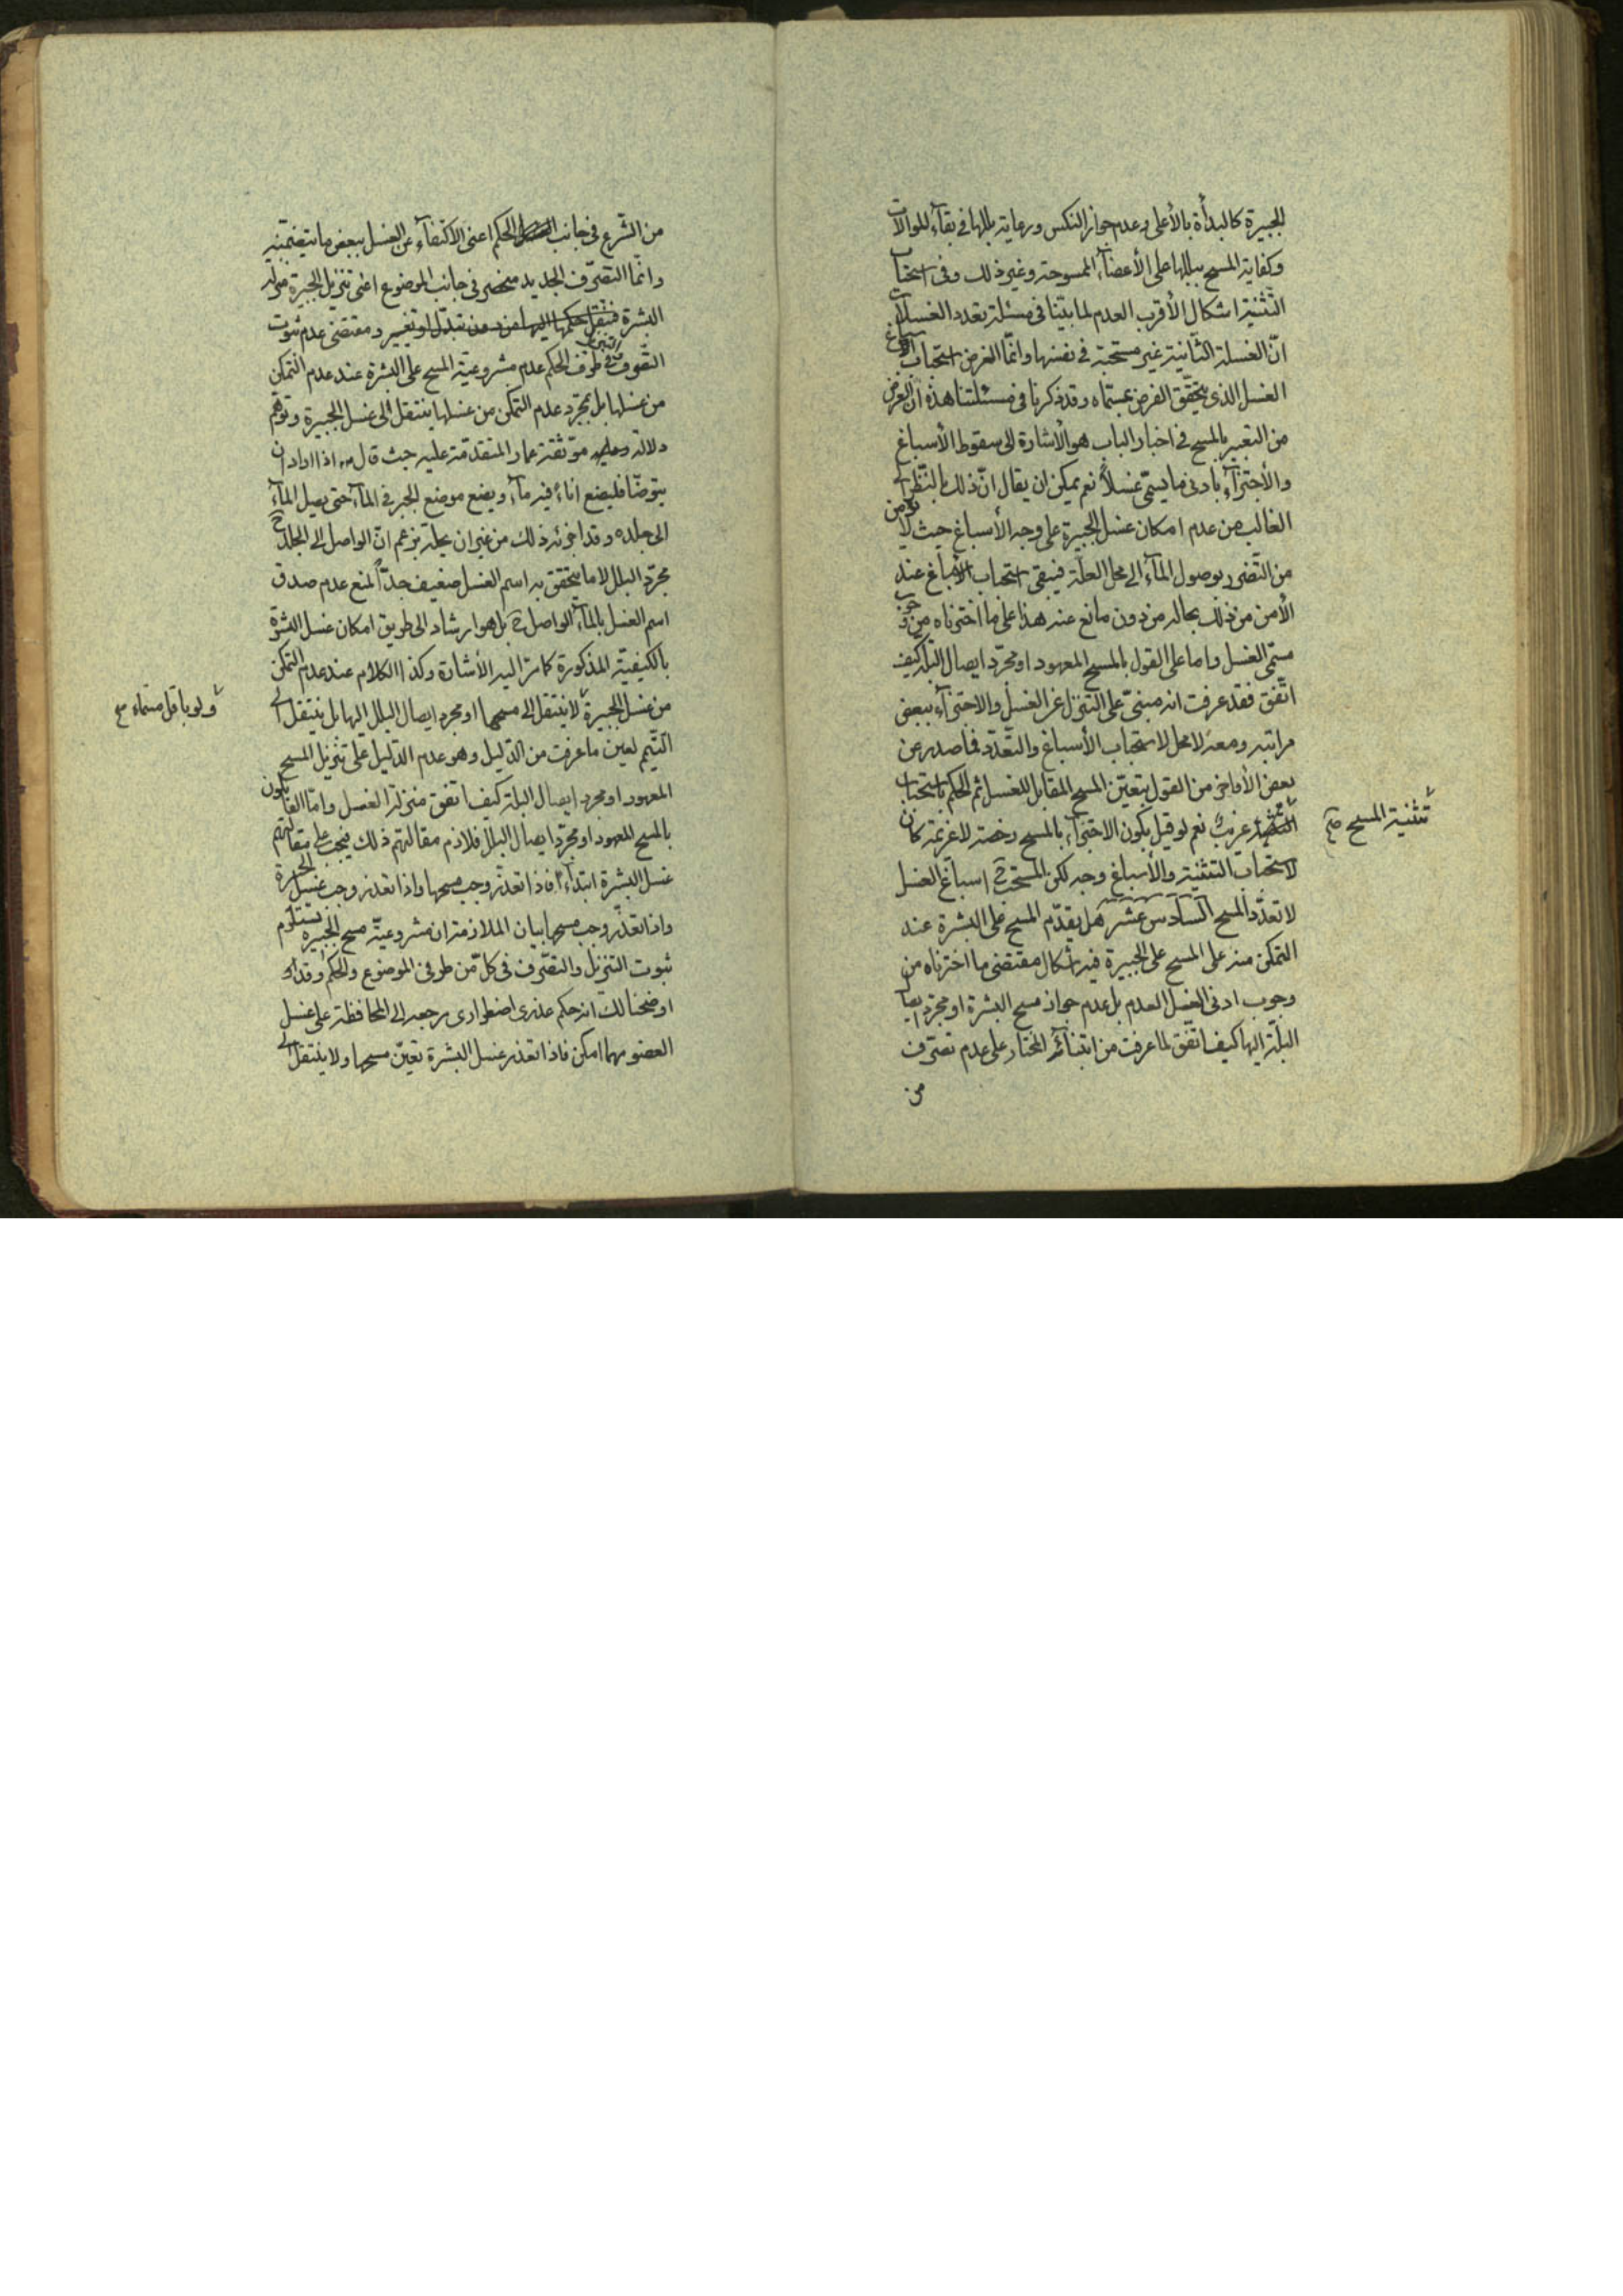 الجبيرة كالبدأة بالأعلى وعدم جواز النكس ورعاية بللها في بقآء الموالات
وكفاية المسح ببللها على الأعضآء الممسوحة وغير ذلك وفى استحباب
التّثنية اشكال الأقرب العدم لما بيّنا فى مسئلة تعدد الغسلات
انّ الغسلة الثّانية غير مستحبّة في نفسها وانّما الغرض استحباب الأسباغ
الغسل الذى يتحقّق الفرض بمسمّاه وقد ذكرنا فى مسئلتنا هذه انّ الغرض
من التعبير بالمسح في اخبار الباب هو الأشارة الى سقوط الأسباغ
والأجتزآء بادنى ما يسمّى غسلاً نعم يمكن ان يقال انّ ذلك بالنّظر الى
الغالب من عدم امكان غسل الجبيرة على وجه الأسباغ حيث لا يؤمن
من التّضرر بوصول المآء الى محلّ العلّة فيبقى استحباب الأسباغ عند
الأمن من ذلك بحاله من دون مانع عنه هذا على ما اخترناه من وجوب
مسمّى الغسل واما على القول بالمسح المعهود او مجرّد ايصال البلّة كيف
اتّفق فقد عرفت انه مبنىّ على التنزّل عن الغسل والاجتزآء ببعض
مراتبه ومعه لا محل لاستحباب الأسباغ والتّعدّد فما صدر عن
بعض الأفاضل من القول بتعيّن المسح المقابل للغسل ثم الحكم باستحباب
تثنية المسح صح
غريب نعم لو قيل بكون الاجتزآء بالمسح رخصة لا عزيمة كان
لاستحباب التثنية والأسباغ وجه لكن المستحب ح اسباغ الغسل
لا تعدّد المسح السّادس عشر هل يقدّم المسح على البشرة عند
التمكن منه على المسح على الجبيرة فيه اشكال مقتضى ما اخترناه من
وجوب ادنى الغسل العدم بل عدم جواز مسح البشرة او مجرّد ايصال
البلّة اليها كيف اتّفق لما عرفت من ابتناء المختار على عدم تصرّف
من
من الشّرع فى جانب الحكم اعنى الاكتفآء عن الغسل ببعض ما يتضمّنه
وانّما التصرّف الجديد منحصر فى جانب الموضوع اعنى تنزيل الجبيرة منزلة
البشرة فينقل حكمها اليها من دون تبدّل او تغيير ومقتضى عدم ثبوت
التّصرف فى طرف الحكم عدم مشروعية المسح على البشرة عند عدم التمكن
من غسلها بل بمجرّد عدم التمكن من غسلها ينتقل الى غسل الجبيرة وتوهّم
دلالة موثّقة عمار المتقدّمة عليه حيث قال اذا اراد ان
يتوضّأ فليضع انآء فيه مآء ويضع موضع الجبر فى المآء حتى يصل المآء
الى جلده وقد اجزئه ذلك من غير ان يحلّه بزعم انّ الواصل الى الجلد ح
مجرّد البلل لا ما يتحقق به اسم الغسل ضعيف جدّاً لمنع عدم صدق
اسم الغسل بالمآء الواصل ح بل هو ارشاد الى طريق امكان غسل البشرة
بالكيفيّة المذكورة كما مرّ اليه الأشارة وكذا الكلام عند عدم التمكن
من غسل الجبيرة لا ينتقل الى مسحها او مجرد ايصال البلل اليها بل ينتقل الى
ولو باقل مسمّاه صح
التّيمم لعين ما عرفت من الدّليل وهو عدم الدّليل على تنزيل المسح
المعهود او مجرد ايصال البلة كيف اتفق منزلة الغسل وامّا القائلون
بالمسح المعهود او مجرّد ايصال البلل فلازم مقالتهم ذلك فيجب على مقالتهم
غسل البشرة ابتدآء فاذا تعذّر وجب مسحها واذا تعذر وجب غسل الجبيرة
واذا تعذّر وجب مسحها بيان الملازمة ان مشروعيّة مسح الجبيرة يستلزم
ثبوت التنزيل والتصّرف فى كلّ من طرفى الموضوع والحكم وقد
اوضحنا لك انه حكم عذرى اضطرارى مرجعه الى المحافظة على غسل
العضو مهما امكن فاذا تعذر غسل البشرة تعيّن مسحها ولا ينتقل الى